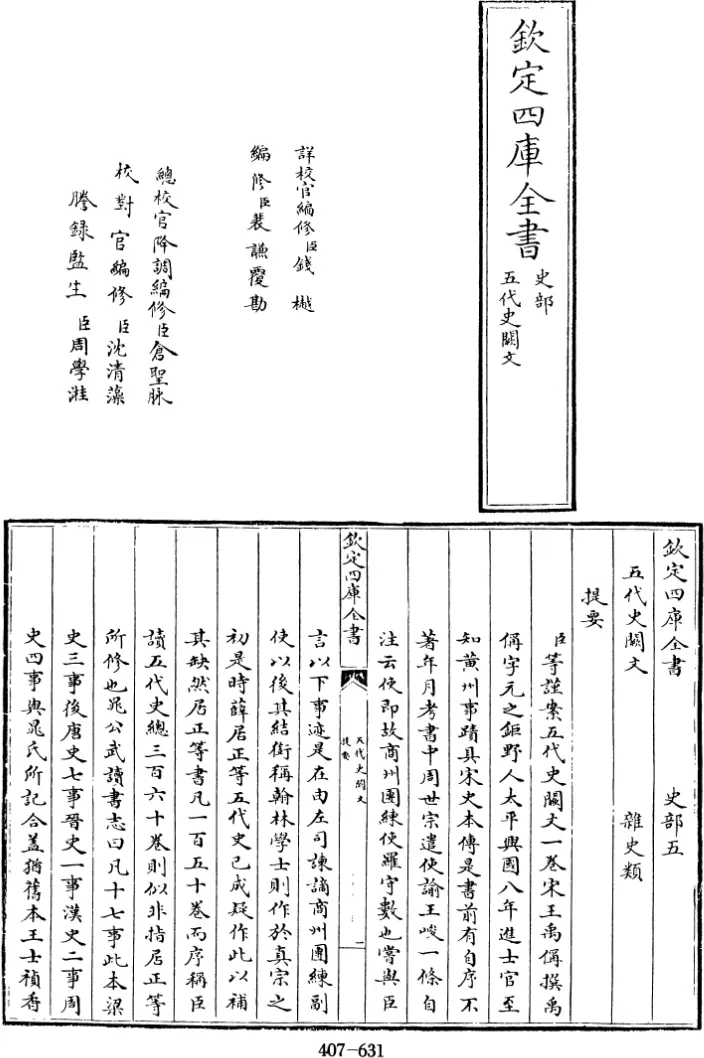 欽定四庫全書
史部
五代史闕文
詳校官編修臣錢樾
編修臣裴謙覆勘
總校官降調編修臣倉聖脉
校對官編修臣沈清藻
謄錄監生臣周學淮
欽定四庫全書 史部五
五代史闕文 雜史類
提要
臣等謹案五代史闕文一卷宋王禹偁撰禹
偁字元之鉅野人太平興國八年進士官至
知黃州事蹟具宋史本傳是書前有自序不
著年月考書中周世宗遣使諭王峻一條自
注云使即故商州團練使羅守數也嘗與臣
欽定四庫全書
五代史闕文
提要
一
言以下事迹是在由左司諫謫商州團練副
使以後其結銜稱翰林學士則作於真宗之
初是時薛居正等五代史已成疑作此以補
其缺然居正等書凡一百五十卷而序稱臣
讀五代史總三百六十卷則似非指居正等
所修也晁公武讀書志曰凡十七事此本梁
史三事後唐史七事晉史一事漢史二事周
史四事與晁氏所記合蓋猶舊本王士禎香
407-631